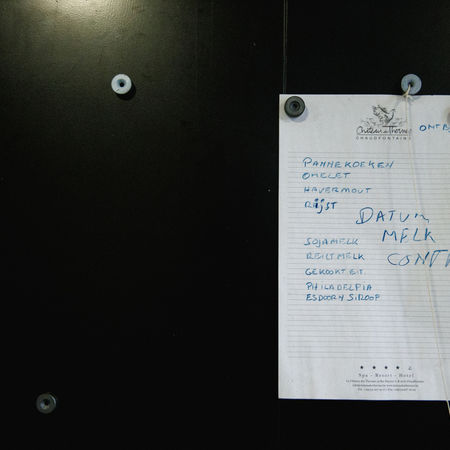 Château des Thermes
CHAUDFONTAINE
ONTB
PANNEKOEKEN
OMELET
HAVERMOUT
RIJST
DATUM
MELK
CONT
SOJAMELK
REIJTMELK
GEKOOKT EIT.
PHILADELPIA
ESDOORN SIROOP
Spa - Resort - Hotel